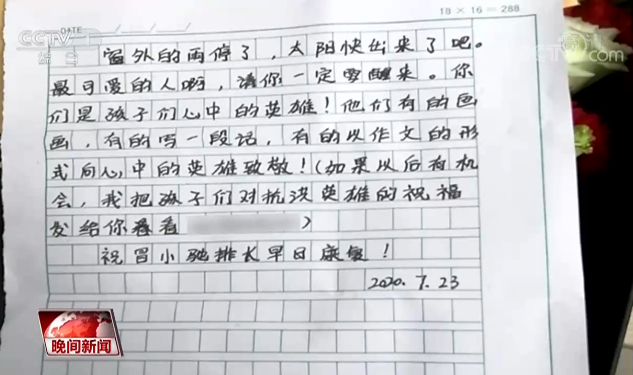 DATE
18 × 16 = 288
CCTV 1
综合
央视网
窗外的雨停了，太阳快出来了吧。
最可爱的人啊，请你一定要醒来。你
们是孩子们心中的英雄！他们有的画
画，有的写一段话，有的以作文的形
式向心中的英雄致敬！(如果以后有机
会，我把孩子们对抗洪英雄的祝福
发给你看看 )
祝冒小驰排长早日康复！
2020.7.23
晚间新闻